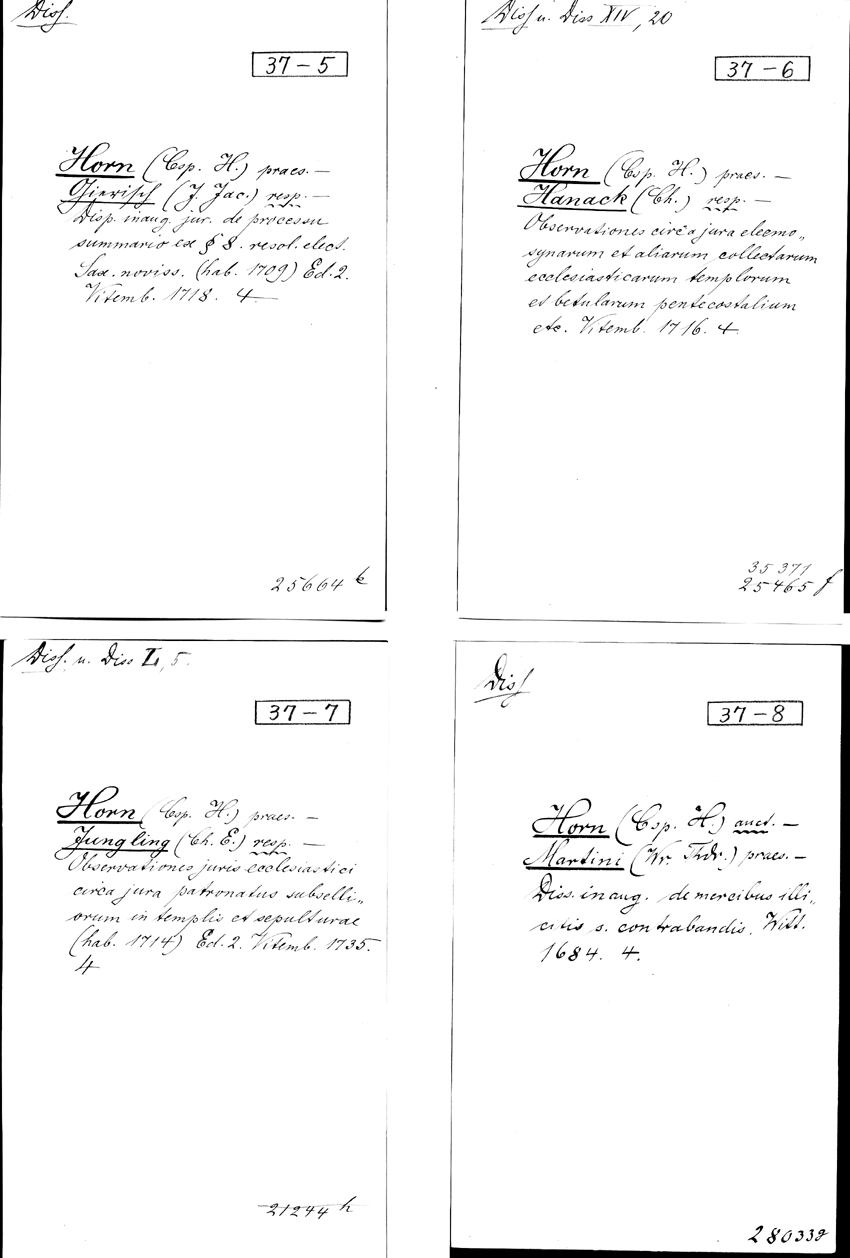 Diss.
37-5
Horn (Csp. H.) praes. —
Gierisch (J. Jac.) resp. —
Disp. inaug. jur. de processu
summario ex § 8. resol. elect.
Sax. noviss. (hab. 1709) Ed. 2.
Vitemb. 1718. 4 —
25664
Diss u. Diss XIV, 20
37-6
Horn (Csp. H.) praes. —
Hanack (Ch.) resp. —
Observationes circa jura eleemo„
synarum et aliarum collectarum
ecclesiasticarum templorum
et betularum pentecostalium
etc. Vitemb. 1716. 4.
35371
25465 f
Diss. u. Diss L, 5.
37-7
Horn (Csp. H.) praes. —
Jungling (Ch. E.) resp. —
Observationes juris ecclesiastici
circa jura patronatus subselli„
orum in templis et sepulturae
(hab. 1714) Ed. 2. Vitemb. 1735.
4
21244 h
Diss
37-8
Horn (Csp. H.) auct. —
Martini (Nr. Thdr.) praes. —
Diss. inaug. de mercibus illi„
citis s. contrabandis. Witt.
1684. 4.
28033 g